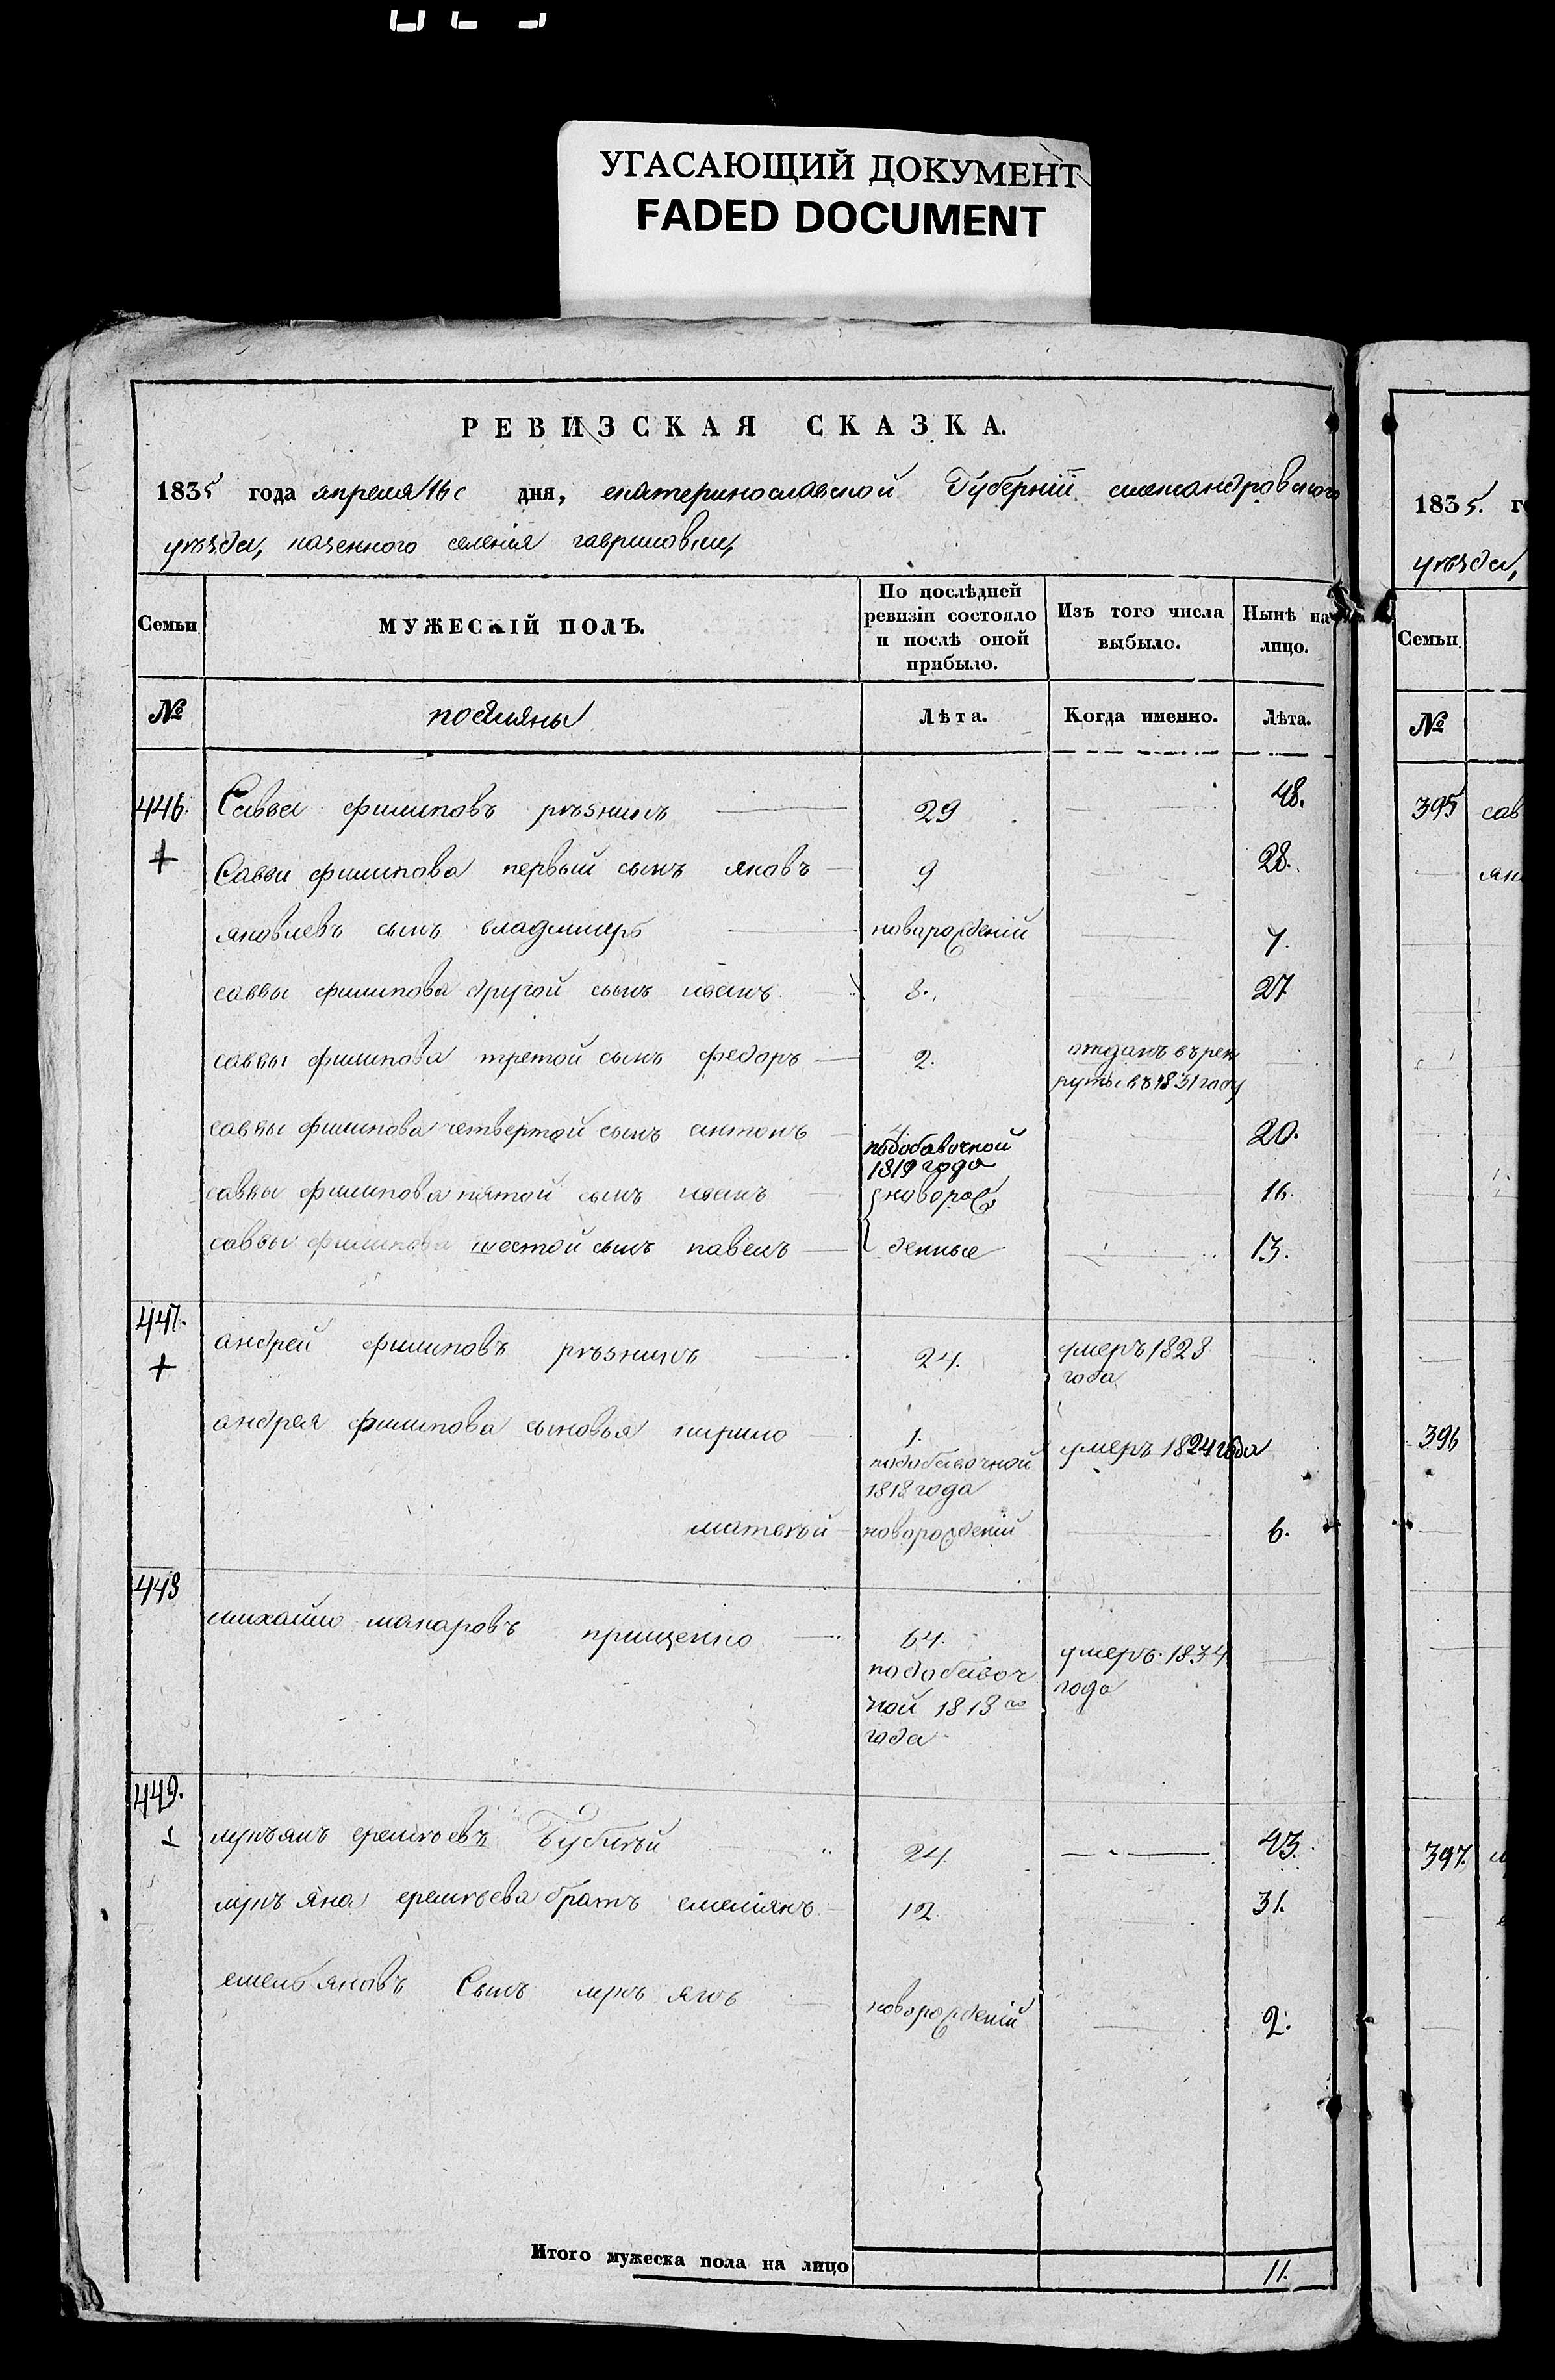 УГАСАЮЩИЙ ДОКУМЕНТ
FADED DOCUMENT
РЕВИЗСКАЯ СКАЗКА.
1835 года апреля 16 дня, екатеринославской Губерніи александровского
уѣзда, казенного селенія гавриловки,
Семьи
МУЖЕСКІЙ ПОЛЪ.
По послѣдней ревизіи состояло и послѣ оной прибыло.
Изъ того числа выбыло.
Нынѣ на лицо.
№
Лѣта.
Когда именно.
Лѣта.
446. Савва филиповъ рѣзникъ 29 48.
+ Саввы филипова первый сынъ яковъ 9 28.
яковлевъ сынъ владимиръ новорожденій 7.
саввы филипова другой сынъ иванъ 8. 27
саввы филипова третой сынъ федоръ 2. отданъ въ рек
руты въ 1831 году
саввы филипова четвертой сынъ антонъ 4. 20.
подобавочной
1819 года
саввы филипова пятой сынъ иванъ новорож 16.
саввы филипова шестой сынъ павелъ денные 13.
447. андрей филиповъ рѣзникъ 24. умеръ 1823
года
+
андрея филипова сыновья кирило 1. умеръ 1824 года
подобавочной
1818 года
матвѣй новорожденій 6.
448 михайло макаровъ прищепко 64. умеръ 1834
года
подобавоч
ной 1818 го
года
449. лукъянъ еремѣевъ Бубикъй 24. 43.
лукъяна еремѣева братъ емеліянъ 12. 31.
емельяновъ Сынъ лукъянъ новорожденій 2.
Итого мужеска пола на лицо 11.
1835. г
уѣзда,
Семьи
№
395 сав
396
397.